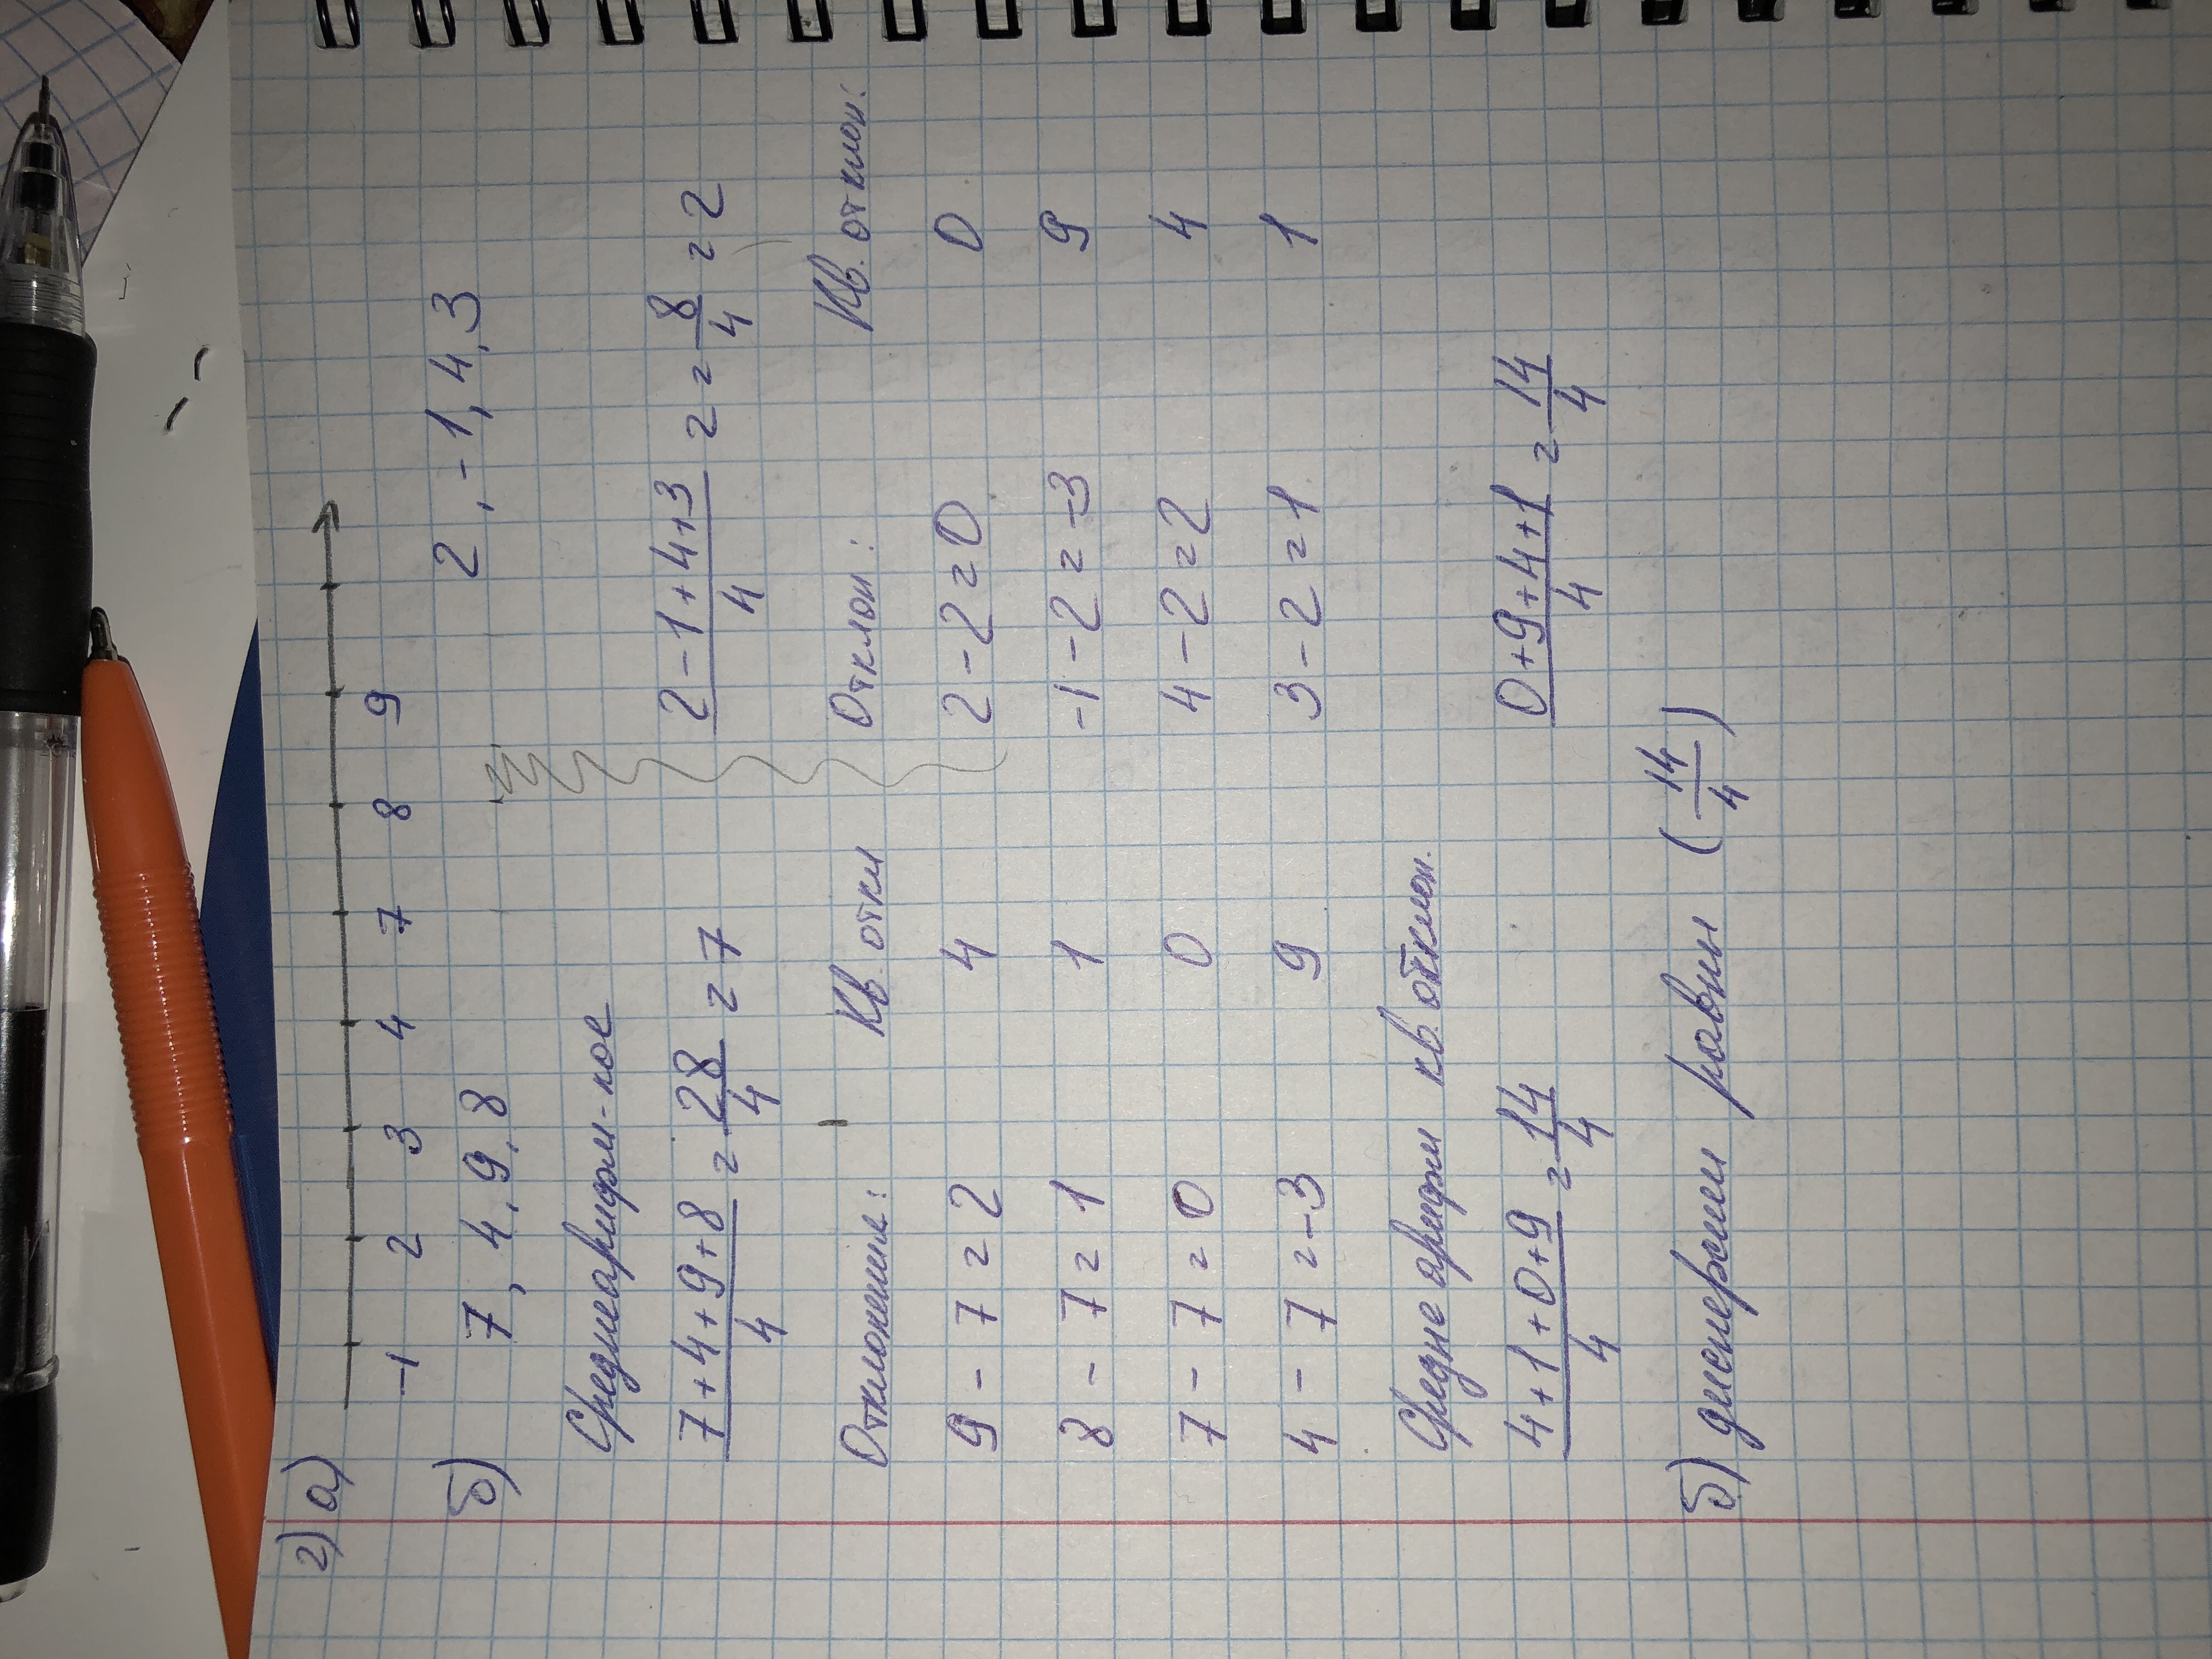 2) а)
-1 2 3 4 7 8 9
б) 7, 4, 9, 8
2, -1, 4, 3
Среднеарифм-кое
7+4+9+8/4 = 28/4 = 7
2-1+4+3/4 = 8/4 = 2
Отклонение: Кв. откл
9 - 7 = 2 4
8 - 7 = 1 1
7 - 7 = 0 0
4 - 7 = -3 9
Отклон: Кв. отклон:
2 - 2 = 0 0
-1 - 2 = -3 9
4 - 2 = 2 4
3 - 2 = 1 1
Средне арифм кв. отклон.
4+1+0+9/4 = 14/4
0+9+4+1/4 = 14/4
б) дисперсии равны (14/4)